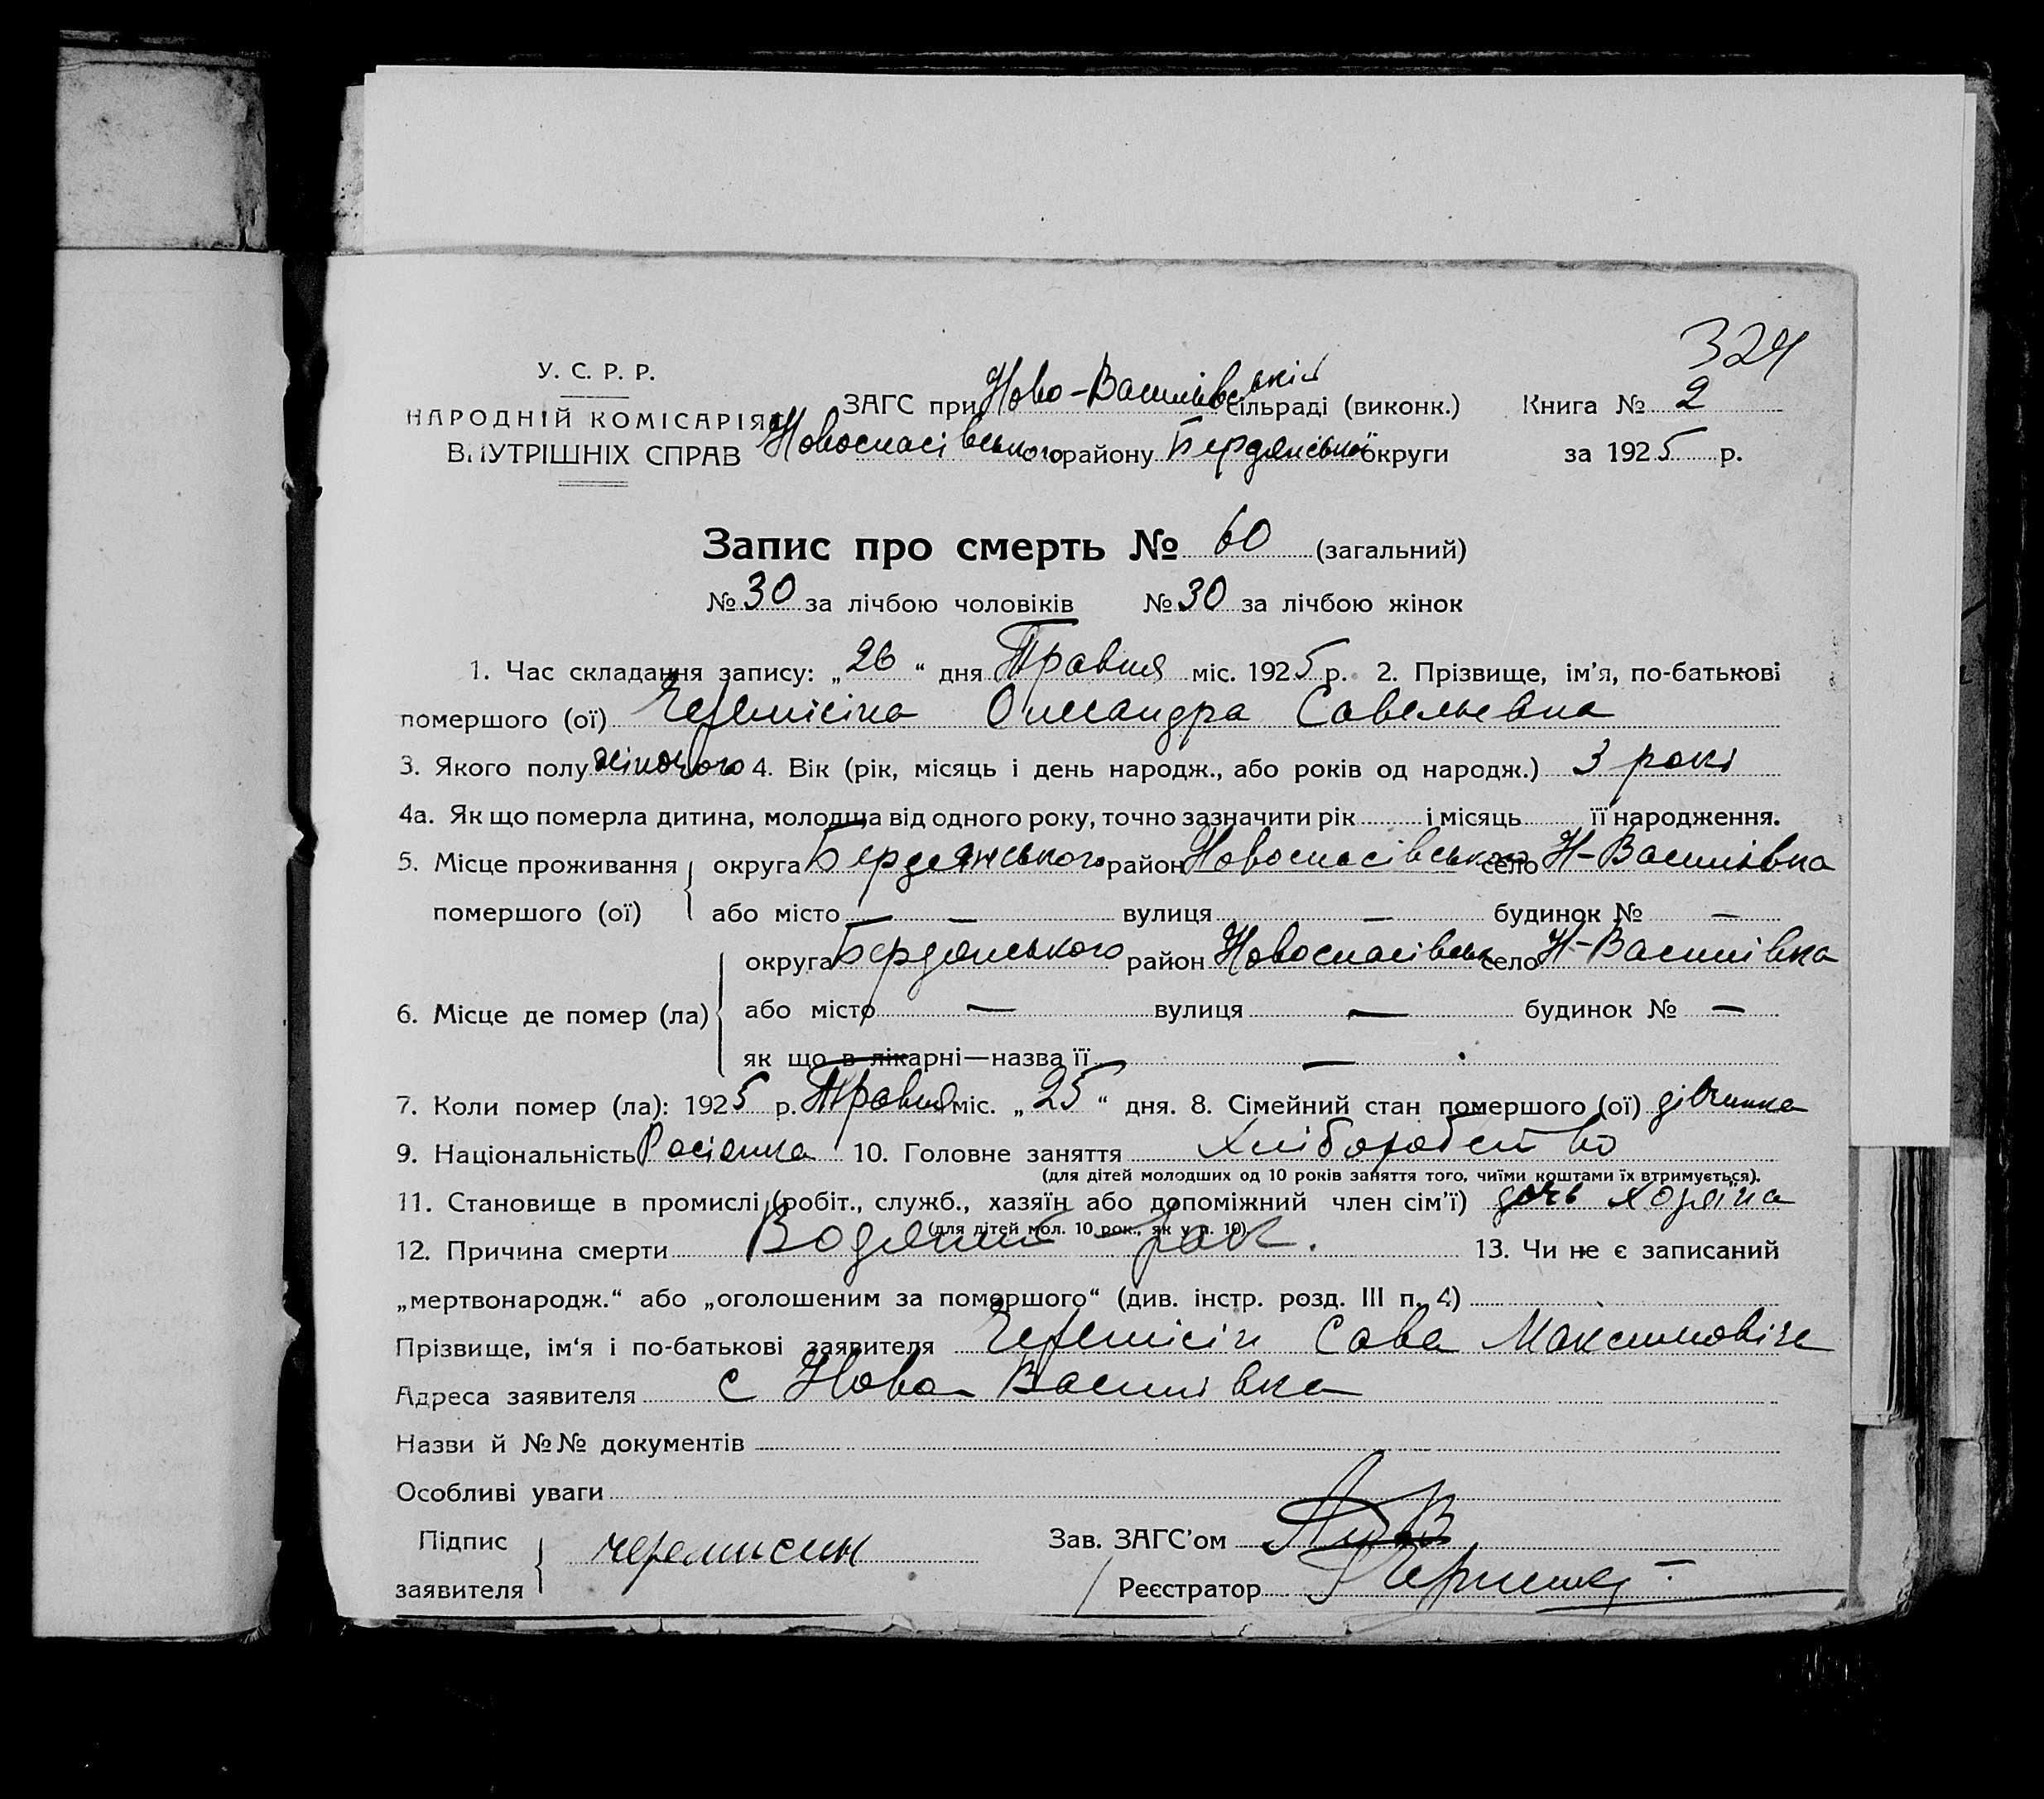 324
У. С. Р. Р.
НАРОДНІЙ КОМІСАРІЯТ
ВНУТРІШНІХ СПРАВ
ЗАГС при Ново-Василівській сільраді (виконк.) Книга № 2
Новоспасівського району Бердянської округи за 1925 р.
Запис про смерть № 60 (загальний)
№ 30 за лічбою чоловіків № 30 за лічбою жінок
1. Час складання запису: „26“ дня Травня міс. 1925 р. 2. Прізвище, ім’я, по-батькові
помершого (ої) Черемісіна Олександра Савельевна
3. Якого полу жіночого 4. Вік (рік, місяць і день народж., або років од народж.) 3 рокі
4а. Як що померла дитина, молодша від одного року, точно зазначити рік і місяць її народження.
5. Місце проживання округа Бердянського район Новоспасівського село Н-Василівка
помершого (ої) або місто — — вулиця — будинок № —
округа Бердянського район Новоспасівськ село Н-Василівка
6. Місце де помер (ла) або місто — вулиця — будинок № —
як що в лікарні—назва її —
7. Коли помер (ла): 1925 р. Травня міс. „25“ дня. 8. Сімейний стан помершого (ої) дівчинка
9. Національність Росіянка 10. Головне заняття Хліборобство
(для дітей молодших од 10 років заняття того, чиїми коштами їх втримується).
11. Становище в промислі (робіт., служб., хазяїн або допоміжний член сім’ї) дочь хозяїна
(для дітей мол. 10 рок., як у п. 10)
12. Причина смерти Водяний рак. 13. Чи не є записаний
„мертвонародж.“ або „оголошеним за помершого“ (див. інстр. розд. III п. 4)
Прізвище, ім‘я і по-батькові заявителя Черемісін Сава Максимовіч
Адреса заявителя с Нова Василівка
Назви й №№ документів
Особливі уваги
Підпис заявителя черемисин Зав. ЗАГС’ом
Реєстратор